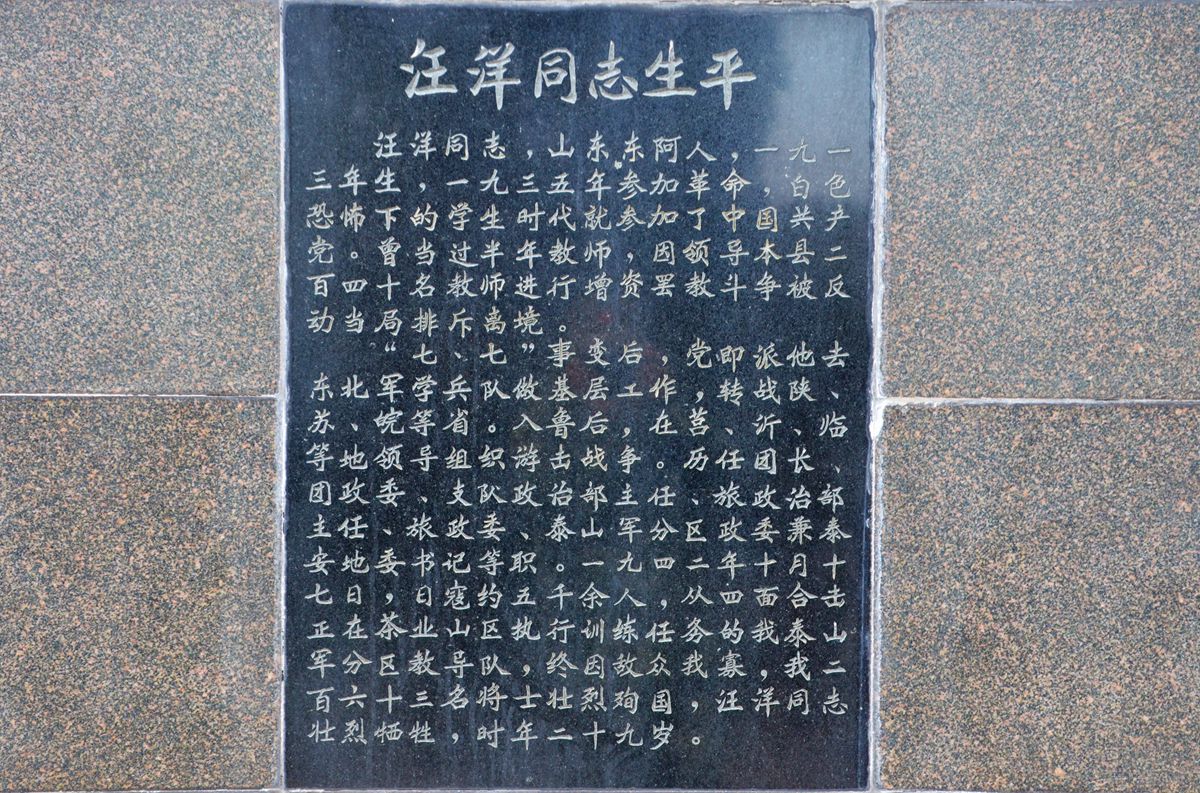 汪洋同志生平
汪洋同志,山东东阿人,一九一
三年生,一九三五年参加革命,白色
恐怖下的学生时代就参加了中国共产
党。曾当过半年教师,因领导本县二
百四十名教师进行增资罢教斗争被反
动当局排斥离境。
“七、七”事变后,党即派他去
东北军学兵队做基层工作,转战陕、
苏、皖等省。入鲁后,在莒、沂、临
等地领导组织游击战争。历任团长、
团政委、支队政治部主任、旅政治部
主任、旅政委、泰山军分区政委兼泰
安地委书记等职。一九四二年十月十
七日,日寇约五千余人,从四面合击
正在茶业山区执行训练任务的我泰山
军分区教导队,终因敌众我寡,我二
百六十三名将士壮烈殉国,汪洋同志
壮烈牺牲,时年二十九岁。